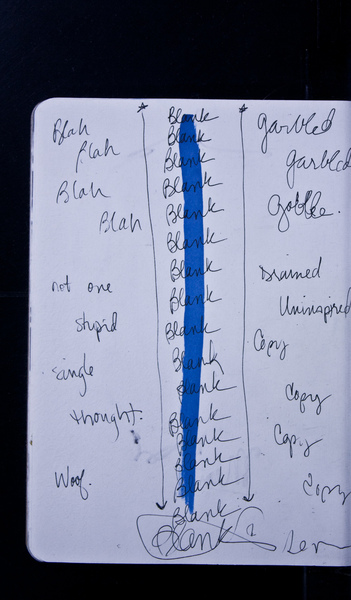 Blah
Blah
Blah
Blah
not one
stupid
single
thought.
Woof.
Blank
Blank
Blank
Blank
Blank
Blank
Blank
Blank
Blank
Blank
Blank
Blank
Blank
Blank
Blank
Blank
Blank
garbled
garbled
gobble.
Drained
Uninspired
Copy
Copy
Copy
Copy